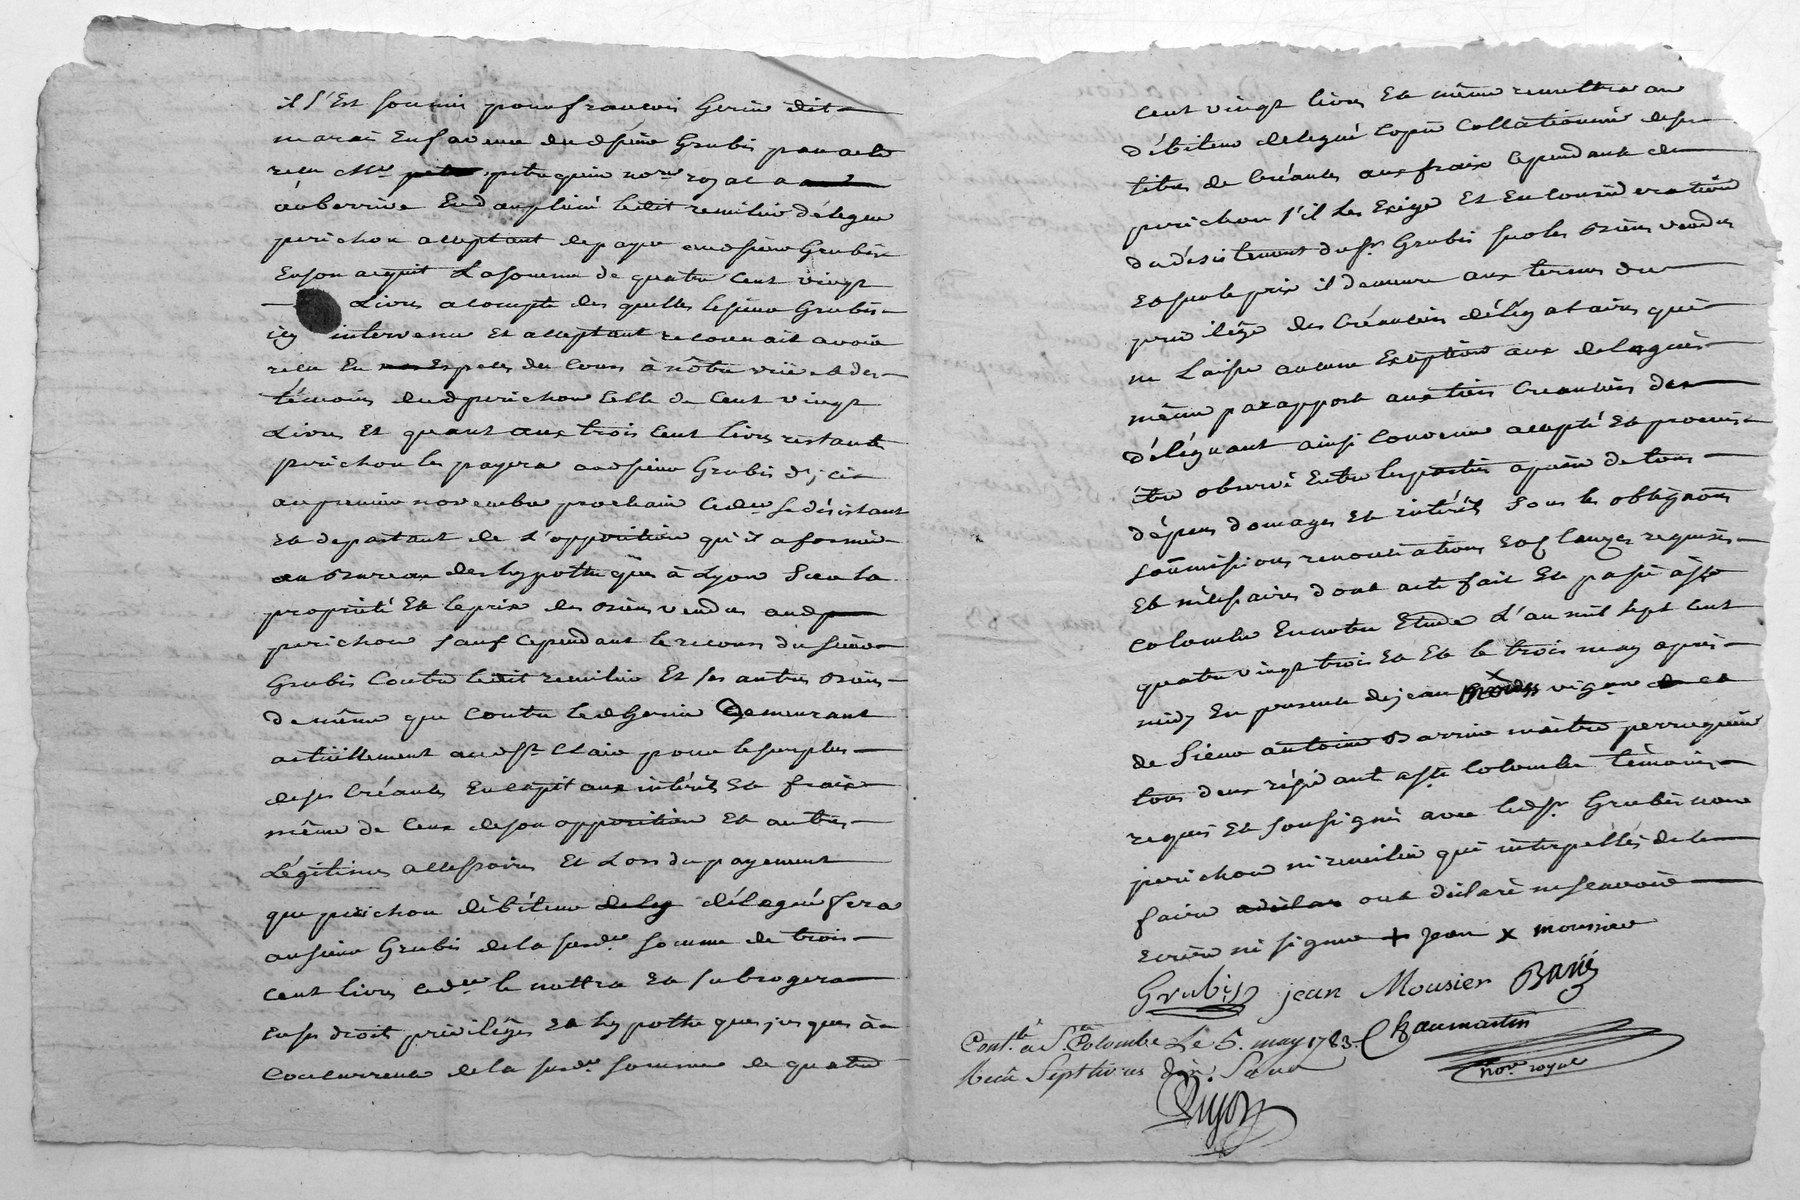 il s'Est soumis pour francois Gerin dit
marais En faveur dud sieur Grubis par acte
recu Me petrequin nore royal a
auberrive En dauphiné ledit remilier délegue
perichon acceptant de payer audsieur Grubis
En son acquit La somme de quatre Cent vingt
Livres a compte des quelles le sieur Grubis
icy intervenu Et acceptant reconnait avoir
recu En Especes du Cours à nôtre vüe et des
témoins dudperichon Celle de Cent vingt
Livres Et quant aux trois Cent livres restant
perichon les payera audsieur Grubis d'icir
au premier novembre prochain Ceder se désistant
Et departant de L'opposition qu'il a formé
au Bureau des hypotheques à Lyon Sur la
proprieté Et le prix des Biens vendus aud
perichon sauf Cependant le recours du sieur
Grubis Contre ledit remilier Et ses autres Biens
de même que Contre led Gerin Demeurant
actüellement aud St Clair pour le surplus
de ses Créances En capit aux intérêts Et fraix
même de Ceux de son opposition Et autres
Légitimes accessoires Et Lors du payement
que perichon débiteur délégué fera
au sieur Grubis de la susde somme de trois
Cent livres Ceder le mettra Et subrogera
En ses droit privilèges Et hypotheques jusques à
Concurrence de la susde somme de quatre
Cent vingt livres Et même remettra au
débiteur delegué Copie Collationnée de ses
titres de Créances aux fraix Cependant de
perichon s'il Les Exige Et En Considération
du désistement du sr Grubis sur les Biens vendus
Et sur le prix il demeure aux termes du
privilége des Créanciers délégataires qui
ne Laisse aucune Exception aux delegués
même par apport aux tiers Creanciers des
déléguant ainsi Convenu accepté Et promis
être observé Entre les parties a peine de tous
dépens domages Et intérêts sous les obligaons
soumissions renonciations Et Clauzes requises
Et nécessaires dont acte fait Et passé à Ste
Colombe En notre Etude L'an mil sept Cent
quatre vingt trois Et le trois may après
midy En presence de jean vigneron de Ce
de Sieur antoine Barrin maitre perruquier
tous deux résidants a Ste Colombe témoins
requis Et soussignés avec led sr Grubis non
perichon ni remilier qui interpellés de le
faire ont déclaré ne sçavoir
Ecrire ni signer + jean x moussier
Grubis jean Mousier Barin
Contlé à Ste Colombe Le 5. may 1783. Chaumartin
Recu Sept livres dix sols nore royal
Guyon